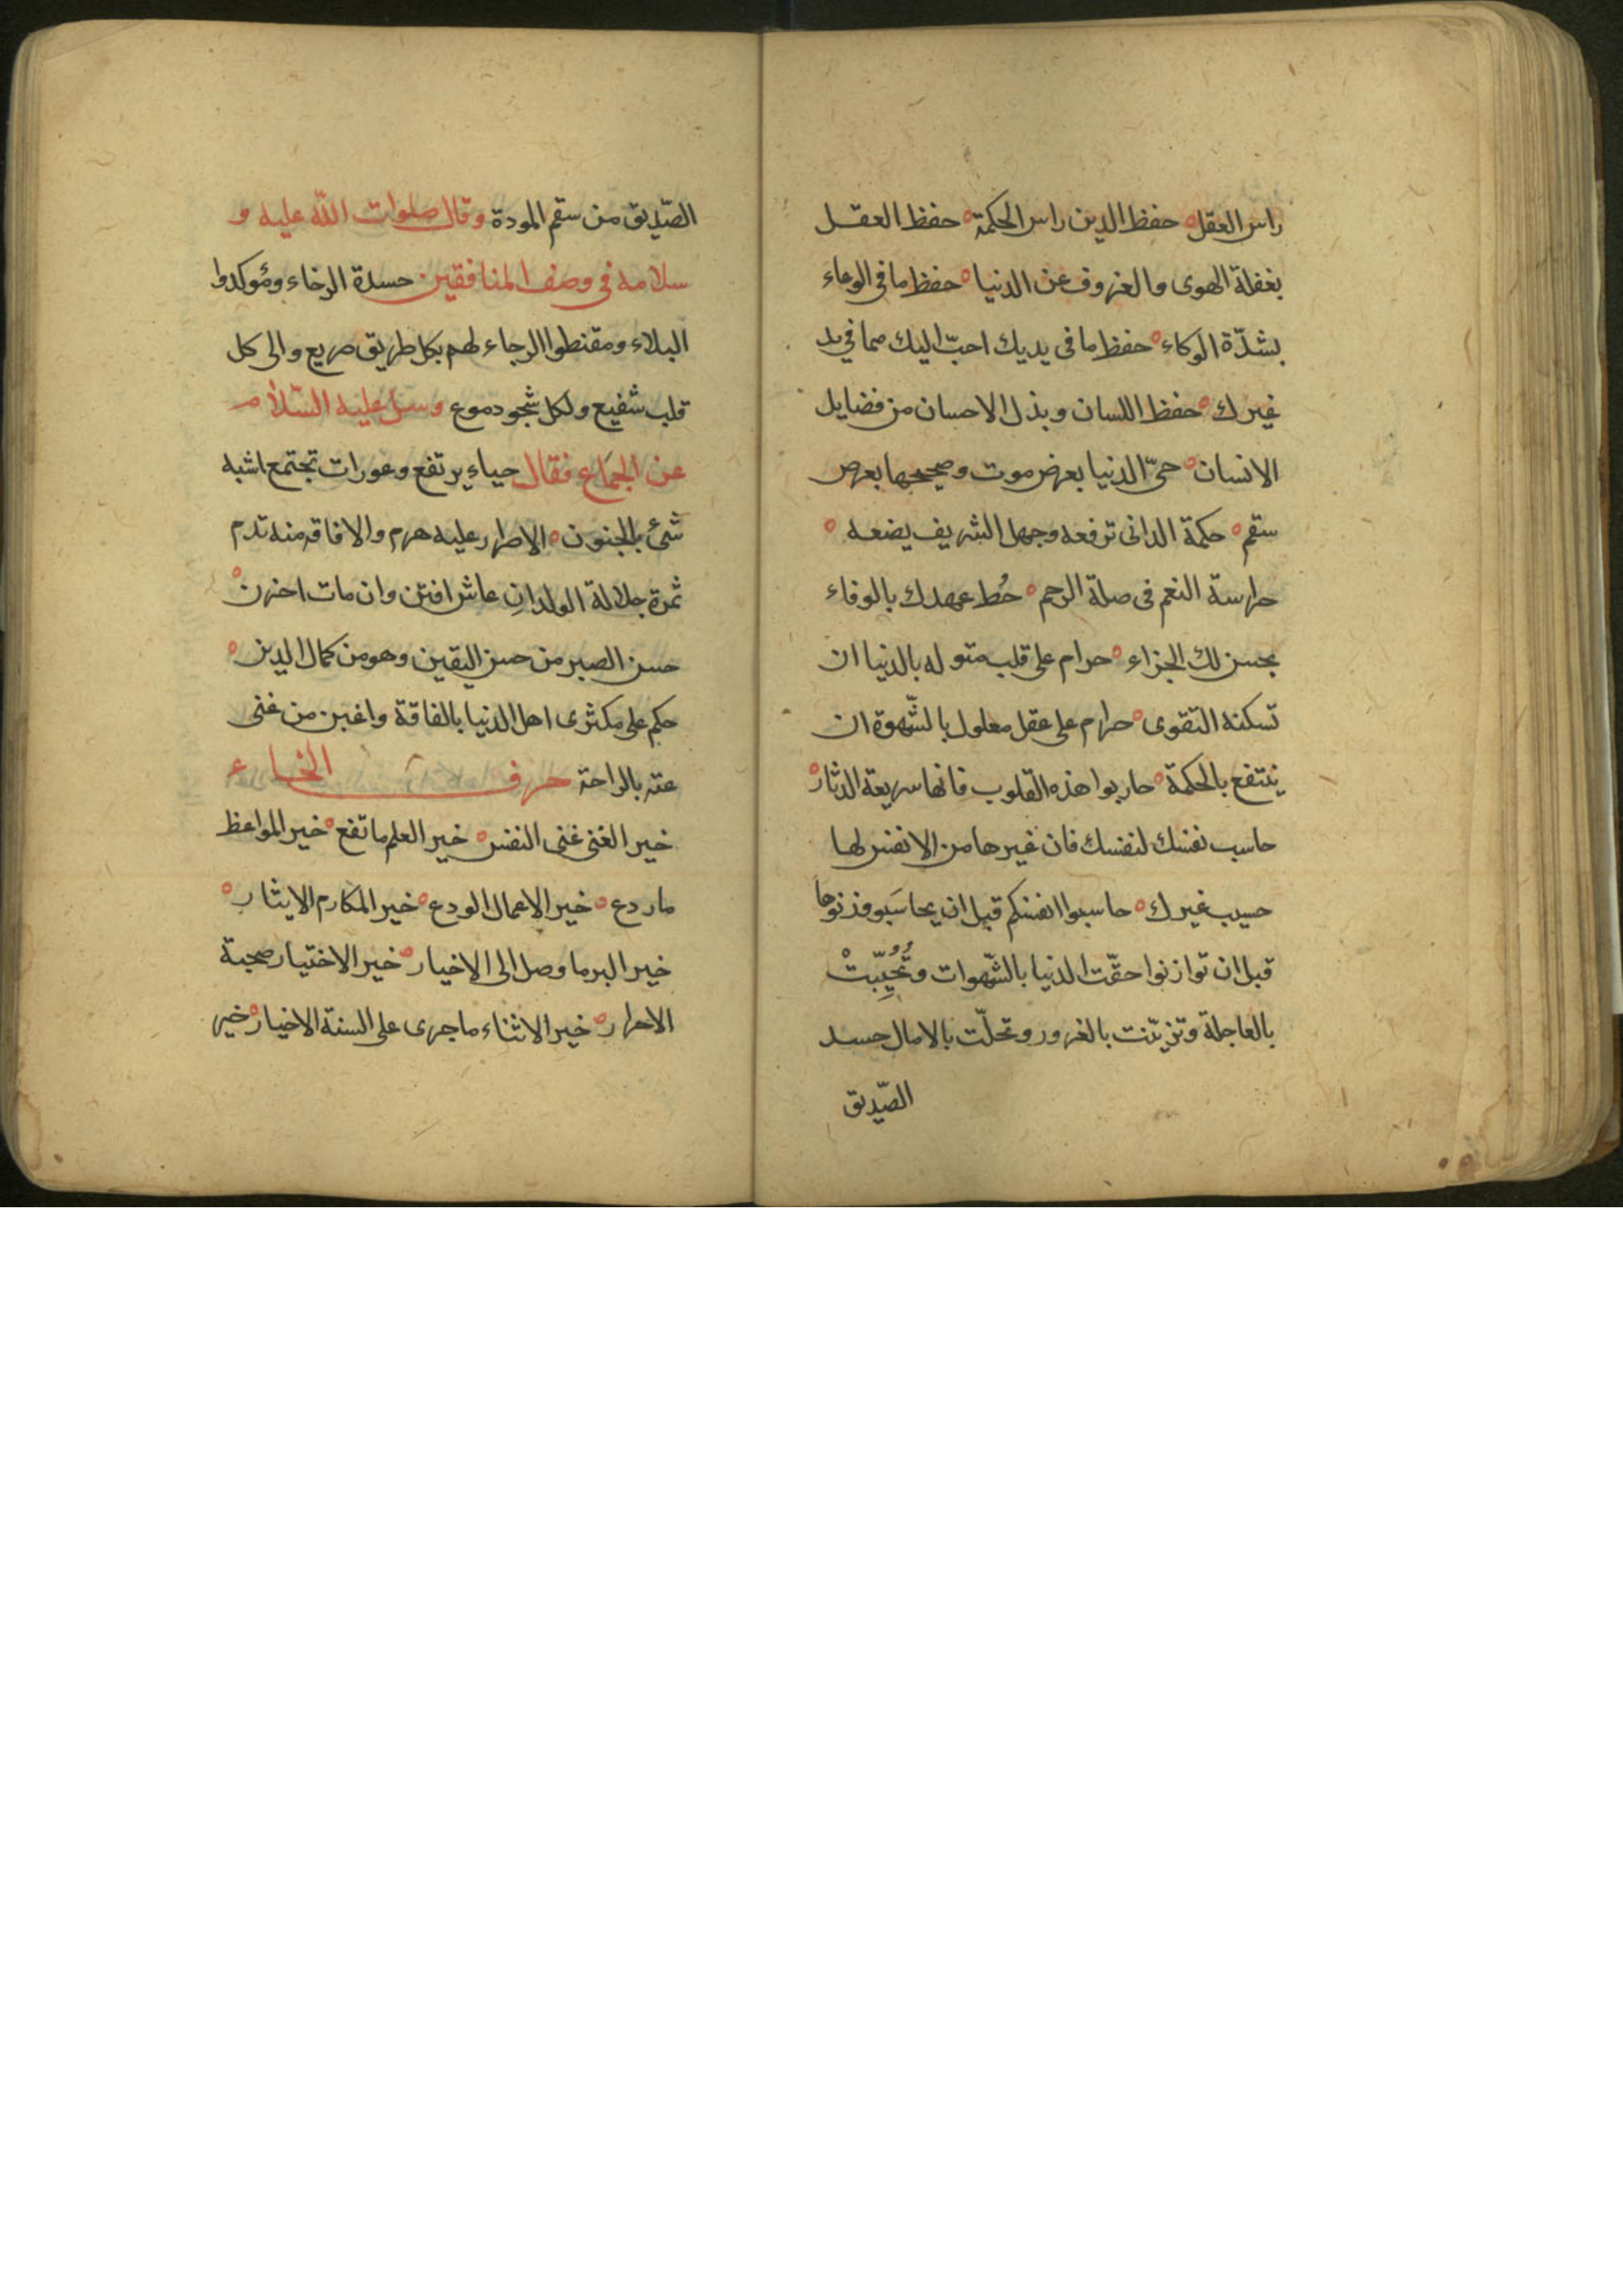 راس العقل ه حفظ الدين راس الحكمة ه حفظ العقل
بغفلة الهوى والعزوف عن الدنيا ه حفظ ما فى الوعاء
بشدّة الوكاء ه حفظ ما فى يديك احبّ اليك مما فى يد
غيرك ه حفظ اللسان وبذل الاحسان من فضايل
الانسان ه حىّ الدنيا بعرض موت وصحيحها بعرض
سقم ه حكمة الدانى ترفعه وجهل الشريف يضعه ه
حراسة النعم فى صلة الرحم ه حُط عهدك بالوفاء
يحسن لك الجزاء ه حرام على قلب متوله بالدنيا ان
تسكنه التقوى ه حرام على عقل معلول بالشّهوة ان
ينتفع بالحكمة ه حاربوا هذه القلوب فانها سريعة الدثار ه
حاسب نفسك لنفسك فان غيرها من الانفس لها
حسيب غيرك ه حاسبوا انفسكم قبل ان يحاسَبو وزنوها
قبل ان توازنوا حقّت الدنيا بالشّهوات وتُحُبِّبَتْ
بالعاجلة وتزيّنت بالغرور وتحلّت بالامال حسد
الصّديق
الصّديق من سقم المودة وقال صلوات اللّه عليه و
سلامه فى وصف المنافقين حسدة الرخاء ومؤكدوا
البلاء ومقنطوا الرجاء لهم بكل طريق صريع والى كل
قلب شفيع ولكل شجو دموع وسئل عليه السّلام
عن الجماع فقال حياء يرتفع وعورات تجتمع اشبه
شئ بالجنون ه الاصرار عليه هرم والافاقه منه تدم
ثمرة جلالة الولد انِ عاش افتن وان مات احزن ه
حسن الصبر من حسن اليقين وهو من كمال الدين ه
حكم على مكثرى اهل الدنيا بالفاقة واغبن من غنى
عنه بالراحة حرف الخاء
خير الغنى غنى النفس ه خير العلم ما نفع ه خير المواعظ
ما ردع ه خير الاعمال الودع ه خير المكارم الايثار ه
خير البر ما وصل الى الاخيار ه خير الاختيار صحبة
الاحرار ه خير الاثناء ما جرى على السنة الاخيار ه خير